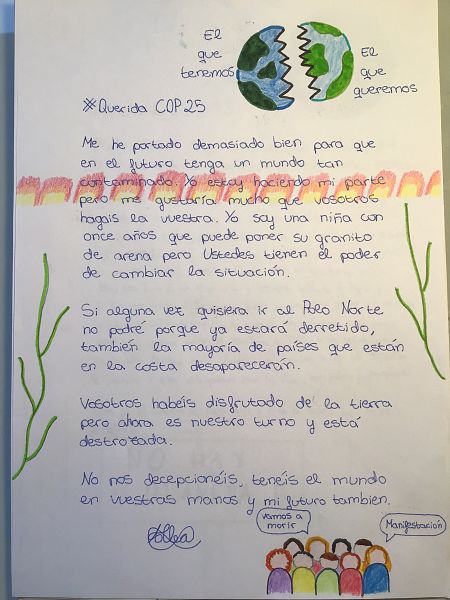 El
que
tenemos
El
que
queremos
*Querida COP25
Me he portado demasiado bien para que
en el futuro tenga un mundo tan
contaminado. Yo estoy haciendo mi parte
pero me gustaría mucho que vosotros
hagais la vuestra. Yo soy una niña con
once años que puede poner su granito
de arena pero Ustedes tienen el poder
de cambiar la situación.
Si alguna vez quisiera ir al Polo Norte
no podré porque ya estará derretido,
también la mayoría de países que están
en la costa desaparecerán.
Vosotros habéis disfrutado de la tierra
pero ahora es nuestro turno y está
destrozada.
No nos decepcionéis, tenéis el mundo
en vuestras manos y mi futuro tambien.
Vamos a
morir
Manifestación